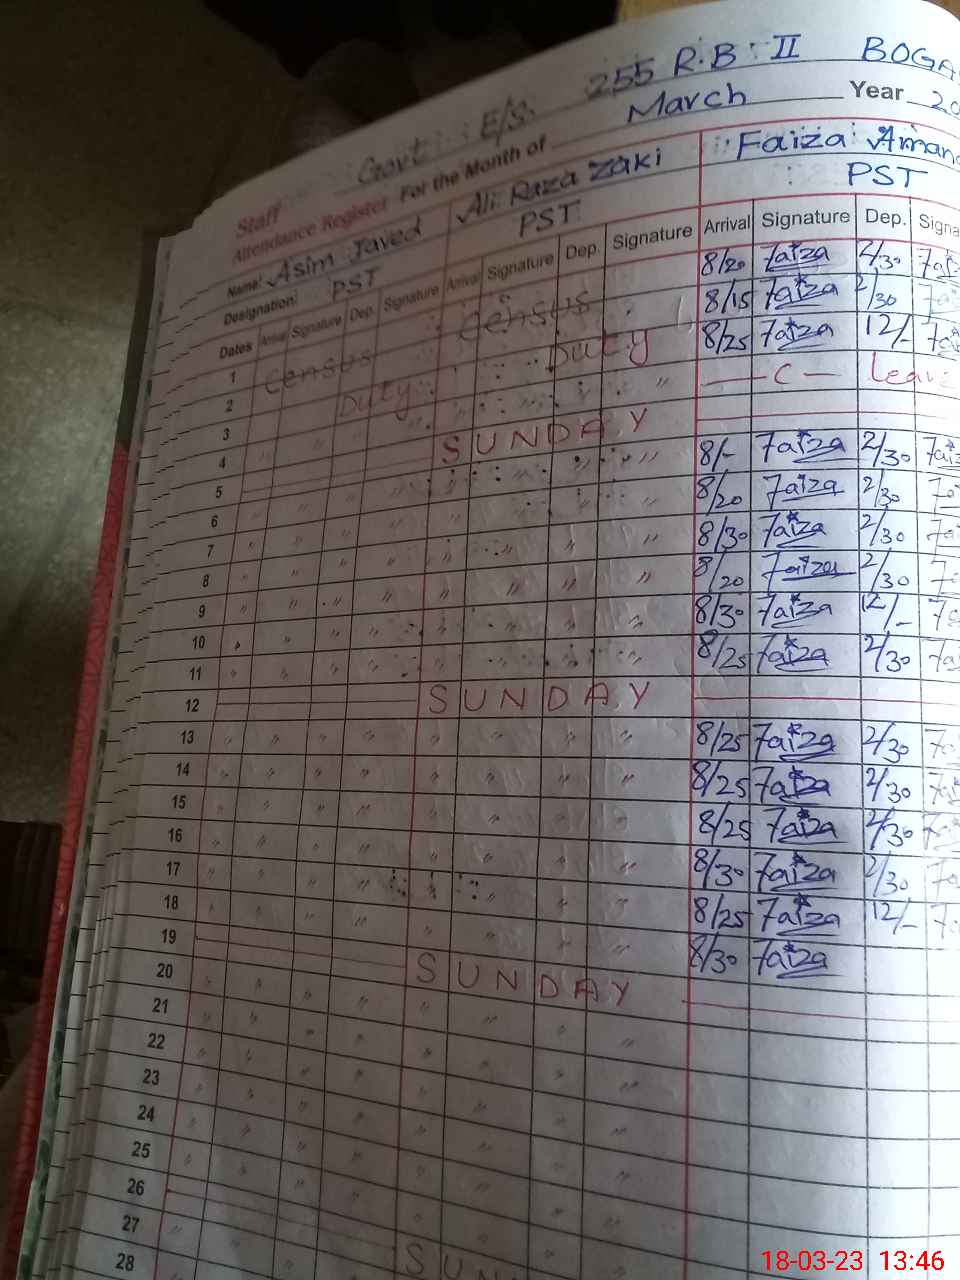 Govt : E/S. 255 R.B : II
Staff
Attendance Register For the Month of March Year 20
Name: Asim Javed Ali Raza Zaki Faiza
Designation: PST PST PST
Dates Arrival Signature Dep. Signature Arrival Signature Dep. Signature Arrival Signature Dep.
1 Census Census 8/20 Faiza 2/30
2 Duty Duty 8/15 Faiza 2/30
3 " " 8/25 Faiza 12/-
4 — C — Leave
5 SUNDAY
6 " " " " " " " " 8/- Faiza 2/30
7 " " " " " " " " 8/20 Faiza 2/30
8 " " " " " " " " 8/30 Faiza 2/30
9 " " " " " " " " 8/20 Faiza 2/30
10 " " " " " " " " 8/30 Faiza 12/-
11 " " " " " " " " 8/25 Faiza 2/30
12 SUNDAY
13 " " " " " " " " 8/25 Faiza 2/30
14 " " " " " " " " 8/25 Faiza 2/30
15 " " " " " " " " 8/25 Faiza 2/30
16 " " " " " " " " 8/30 Faiza 2/30
17 " " " " " " " " 8/25 Faiza 12/-
18 " " " " " " " " 8/30 Faiza
19 SUNDAY
20 " " " " " " " "
21 " " " " " " " "
22 " " " " " " " "
23 " " " " " " " "
24 " " " " " " " "
25 " " " " " " " "
26 SUN
27
28
18-03-23 13:46